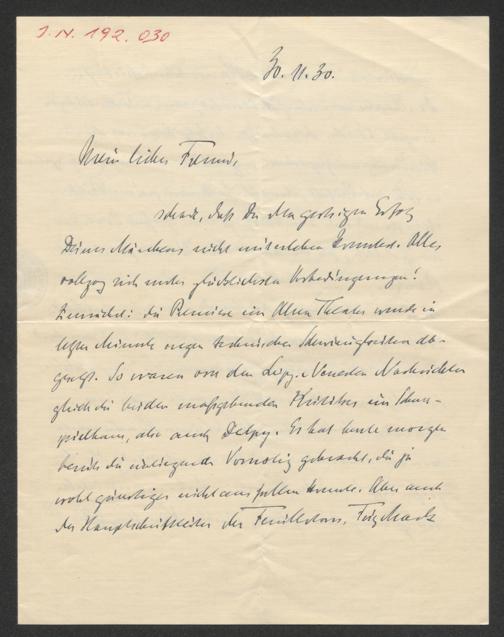 J. N. 192.030
30.11.30.
Mein lieber Freund,
schade, daß Du den gestrigen Erfolg
Deines Märchens nicht miterleben konntest. Alles
vollzog sich unter glücklichsten Vorbedingungen!
Zunächst: die Premiere im Alten Theater wurde in
letzter Minute wegen technischen Schwierigkeiten ab-
gesetzt. So waren von den Leipz. Neuesten Nachrichten
gleich die beiden maßgebenden Kritiker im Schau-
spielhaus, also auch Delpy. Er hat heute morgen
bereits die einliegende Vornotiz gebracht, die ja
wohl günstiger nicht ausfallen konnte. Aber auch
der Hauptschriftleiter des Feuilletons,